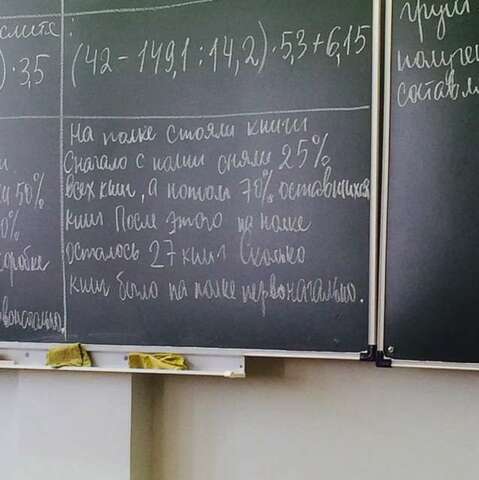 слите:
) · 3,5
(42 - 149,1 : 14,2) · 5,3 + 6,15
На полке стояли книги
Сначало с полки сняли 25%
всех книг, а потом 70% оставшихся
книг После этого на полке
осталось 27 книг Сколько
книг было на полке первоначально.
50%
0%
коробке
груп
получе
состав